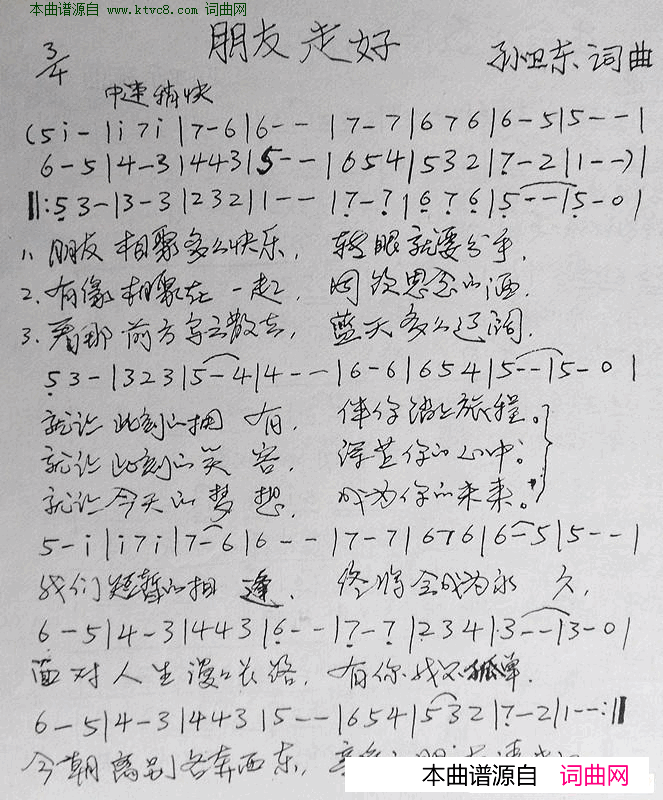 本曲谱源自
www.ktvc8.com 词曲网
朋友走好
3/4
孙卫东 词曲
中速稍快
(5 i - | i 7 i | 7 - 6 | 6 - - | 7 - 7 | 6 7 6 | 6 - 5 | 5 - - |
6 - 5 | 4 - 3 | 4 4 3 | 5 - - | 6 5 4 | 5 3 2 | 7 - 2 | 1 - - ) |
‖: 5 3 - | 3 - 3 | 2 3 2 | 1 - - | 7 - 7 | 6 7 6 | 5 - - | 5 - 0 |
1. 朋友相聚多么快乐, 转眼就要分手,
2. 有缘相聚在一起, 同饮思念的酒,
3. 看那前方乌云散去, 蓝天多么辽阔.
5 3 - | 3 2 3 | 5 - 4 | 4 - - | 6 - 6 | 6 5 4 | 5 - - | 5 - 0 |
就让此刻的拥有, 伴你踏上旅程。
就让此刻的笑容, 深芷你的心中。
就让今天的梦想, 成为你的未来。
5 - i | i 7 i | 7 - 6 | 6 - - | 7 - 7 | 6 7 6 | 6 - 5 | 5 - - |
我们短暂的相逢, 终将会成为永久,
6 - 5 | 4 - 3 | 4 4 3 | 6 - - | 7 - 7 | 2 3 4 | 3 - - | 3 - 0 |
面对人生漫漫长路, 有你我不孤单.
6 - 5 | 4 - 3 | 4 4 3 | 5 - - | 6 5 4 | 5 3 2 | 7 - 2 | 1 - - :‖
今朝离别各奔西东,
本曲谱源自 词曲网